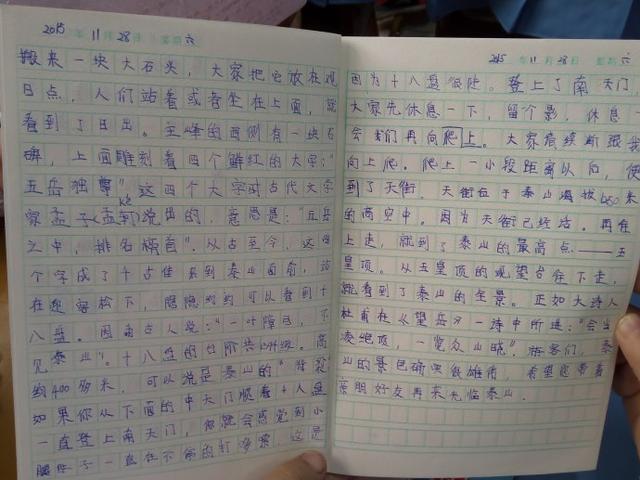 2015年11月28日 星期六
搬来一块大石头，大家把它放在观
日点，人们站着或者坐在上面，就
看到了日出。主峰的西侧有一块石
碑，上面雕刻着四个鲜红的大字：“
五岳独尊”，这四个大字或古代文学
家孟子(孟轲)说出的，意思是：“五岳
之中，排名榜首”。从古至今，这四
个字成了千古佳
来到泰山面前，站
在迎客松下，隐隐约约可以看到十
八盘。因而古人说：“一叶障目，不
见泰山”。十八盘的台阶共
级。高
约400多米，可以说是泰山的“
如果你从下面的中天门顺着十八盘
一直登上南天门，你就会感觉到小
腿肚子一直在不停的打哆嗦，这是
2015年11月28日 星期六
因为十八盘很陡。登上了南天门，
大家先休息一下，留个影，休息一
会我们再向爬上。大家请继续跟我
向上爬。爬上一小段距离以后，便
到了天街。天街位于泰山海拔
米
的高空中。因为天街已经
。再往
上走，就到了泰山的最高点——玉
皇顶。从玉皇顶的观望台往下走，
就看到了泰山的全景。正如大诗人
杜甫在《望岳》一诗中所述：“会当
凌绝顶，一览众山
”。游客们，泰
山的景色
雄
，希望您带着
亲朋好友再来光临泰山。